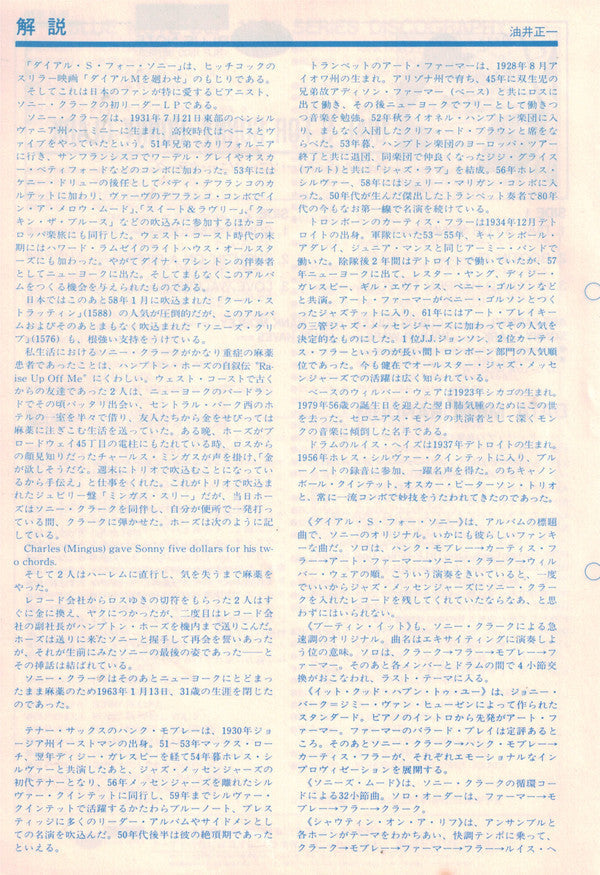 解説
油井正一
「ダイアル・S・フォー・ソニー」は、ヒッチコックの
スリラー映画「ダイアルMを廻わせ」のもじりである。
そしてこれは日本のファンが特に愛するピアニスト、
ソニー・クラークの初リーダーLPである。
ソニー・クラークは、1931年7月21日東部のペンシル
ヴァニア州ハーミニーに生まれ、高校時代はベースとヴ
ァイブをやっていたという。51年兄弟でカリフォルニア
に行き、サンフランシスコでワーデル・グレイやオスカ
ー・ペティフォードなどのコンボに加わった。53年には
ケニー・ドリューの後任としてバディ・デフランコのカ
ルテットに加わり、ヴァーヴのデフランコ・コンボで「イ
ン・ア・メロウ・ムード」、「スイート＆ラヴリー」、「クッ
キン・ザ・ブルース」などの吹込みに参加するほかヨー
ロッパ楽旅にも同行した。ウェスト・コースト時代の末
期にはハワード・ラムゼイのライトハウス・オールスタ
ーズにも加わった。やがてダイナ・ワシントンの伴奏者
としてニューヨークに出た。そしてまもなくこのアルバ
ムをつくる機会を与えられたものである。
日本ではこのあと58年1月に吹込まれた「クール・ス
トラッティン」(1588)の人気が圧倒的だが、このアルバ
ムおよびそのあとまもなく吹込まれた「ソニーズ・クリ
ブ」(1576)も、根強い支持をうけている。
私生活におけるソニー・クラークがかなり重症の麻薬
患者であったことは、ハンプトン・ホーズの自叙伝“Ra-
ise Up Off Me”にくわしい。ウェスト・コーストで古く
からの友達であった2人は、ニューヨークのバードラン
ドでその頃バッタリ出会い、セントラル・パーク西のホ
テルの一室を半々で借り、友人たちから金をせびっては
麻薬に注ぎこむ生活を送っていた。ある晩、ホーズがブ
ロードウェイ45丁目の電柱にもたれている時、ロスから
の顔見知りだったチャールス・ミンガスが声を掛け、「金
が欲しそうだな。週末にトリオで吹込むことになってい
るから手伝え」と仕事をくれた。これがトリオで吹込ま
れたジュビリー盤「ミンガス・スリー」だが、当日ホー
ズはソニー・クラークを同伴し、自分が便所で一発打っ
ている間、クラークに弾かせた。ホーズは次のように記
している。
Charles (Mingus) gave Sonny five dollars for his tw-
o chords.
そして2人はハーレムに直行し、気を失うまで麻薬を
やった。
レコード会社からロスゆきの切符をもらった2人はす
ぐに金に換え、ヤクにつかったが、二度目はレコード会
社の副社長がハンプトン・ホーズを機内まで送りこんだ。
ホーズは送りに来たソニーと握手して再会を誓いあった
が、それが生前にみたソニーの最後の姿であった――と
その挿話は結ばれている。
ソニー・クラークはそのあとニューヨークにとどまっ
たまま麻薬のため1963年1月13日、31歳の生涯を閉じた
のであった。
テナー・サックスのハンク・モブレーは、1930年ジョ
ージア州イーストマンの出身。51〜53年マックス・ロー
チ、翌年ディジー・ガレスピーを経て54年暮ホレス・シ
ルヴァーと共演したあと、ジャズ・メッセンジャーズの
初代テナーとなり、56年メッセンジャーズを離れたシル
ヴァー・クインテットに同行し、59年までシルヴァー・
クインテットで活躍するかたわらブルーノート、プレス
ティッジに多くのリーダー・アルバムやサイドメンとし
ての名演を吹込んだ。50年代後半は彼の絶頂期であった
といえる。
トランペットのアート・ファーマーは、1928年8月ア
イオワ州の生まれ。アリゾナ州で育ち、45年に双生児の
兄弟故アディソン・ファーマー（ベース）と共にロスに
出て働き、その後ニューヨークでフリーとして働きつ
つ音楽を勉強。52年秋ライオネル・ハンプトン楽団に入
り、まもなく入団したクリフォード・ブラウンと席をな
らべた。53年暮、ハンプトン楽団のヨーロッパ・ツアー
終了と共に退団、同楽団で仲良くなったジジ・グライス
（アルト）と共に「ジャズ・ラブ」を結成。56年ホレス・
シルヴァー、58年にはジェリー・マリガン・コンボに入
った。50年代が生んだ傑出したトランペット奏者で80年
代の今もなお第一線で名演を続けている。
トロンボーンのカーティス・フラーは1934年12月デト
ロイトの出身。軍隊にいた53－55年、キャノンボール・
アダレイ、ジュニア・マンスと同じアーミー・バンドで
働いた。除隊後2年間はデトロイトで働いていたが、57
年ニューヨークに出て、レスター・ヤング、ディジー・
ガレスピー、ギル・エヴァンス、ベニー・ゴルソンなど
と共演。アート・ファーマーがベニー・ゴルソンとつく
ったジャズテットに入り、61年にはアート・ブレイキー
の三管ジャズ・メッセンジャーズに加わってその人気を
決定的なものにした。1位J.J.ジョンソン、2位カーティ
ス・フラーというのが長い間トロンボーン部門の人気順
位であった。今も健在でオールスター・ジャズ・メッセ
ンジャーズでの活躍は広く知られている。
ベースのウィルバー・ウェアは1923年シカゴの生まれ。
1979年56歳の誕生日を迎えた翌日肺気腫のためにこの世
を去った。セロニアス・モンクの共演者として深くモン
クの音楽に傾倒した名手である。
ドラムのルイス・ヘイズは1937年デトロイトの生まれ。
1956年ホレス・シルヴァー・クインテットに入り、ブル
ーノートの録音に参加、一躍名声を得た。のちキャノン
ボール・クインテット、オスカー・ピーターソン・トリオ
と、常に一流コンボで妙技をうたわれてきたのであった。
《ダイアル・S・フォー・ソニー》は、アルバムの標題
曲で、ソニーのオリジナル。いかにも彼らしいファンキ
ーな曲だ。ソロは、ハンク・モブレー→カーティス・フ
ラー→アート・ファーマー→ソニー・クラーク→ウィル
バー・ウェアの順。こういう演奏をきいていると、一度
でいいからジャズ・メッセンジャーズにソニー・クラー
クを入れたレコードを残してくれていたならなあ、と思
わずにはいられない。
《ブーティン・イット》も、ソニー・クラークによる急
速調のオリジナル。曲名はエキサイティングに演奏しよ
う位の意味。ソロは、クラーク→フラー→モブレー→フ
ァーマー。そのあと各メンバーとドラムの間で4小節交
換がおこなわれ、ラスト・テーマに入る。
《イット・クッド・ハプン・トゥ・ユー》は、ジョニー・
バーク＝ジミー・ヴァン・ヒューゼンによって作られた
スタンダード。ピアノのイントロから先発がアート・フ
ァーマー。ファーマーのバラード・プレイは定評あると
ころ。そのあとソニー・クラーク→ハンク・モブレー→
カーティス・フラーが、それぞれエモーショナルなイン
プロヴィゼーションを展開する。
《ソニーズ・ムード》は、ソニー・クラークの循環コー
ドによる32小節曲。ソロ・オーダーは、ファーマー→モ
ブレー→フラー→クラーク。
《シャウティン・オン・ア・リフ》は、アンサンブルと
各ホーンがテーマをわかちあい、快調テンポに乗って、
クラーク→モブレー→ファーマー→フラー→ルイス・ヘ